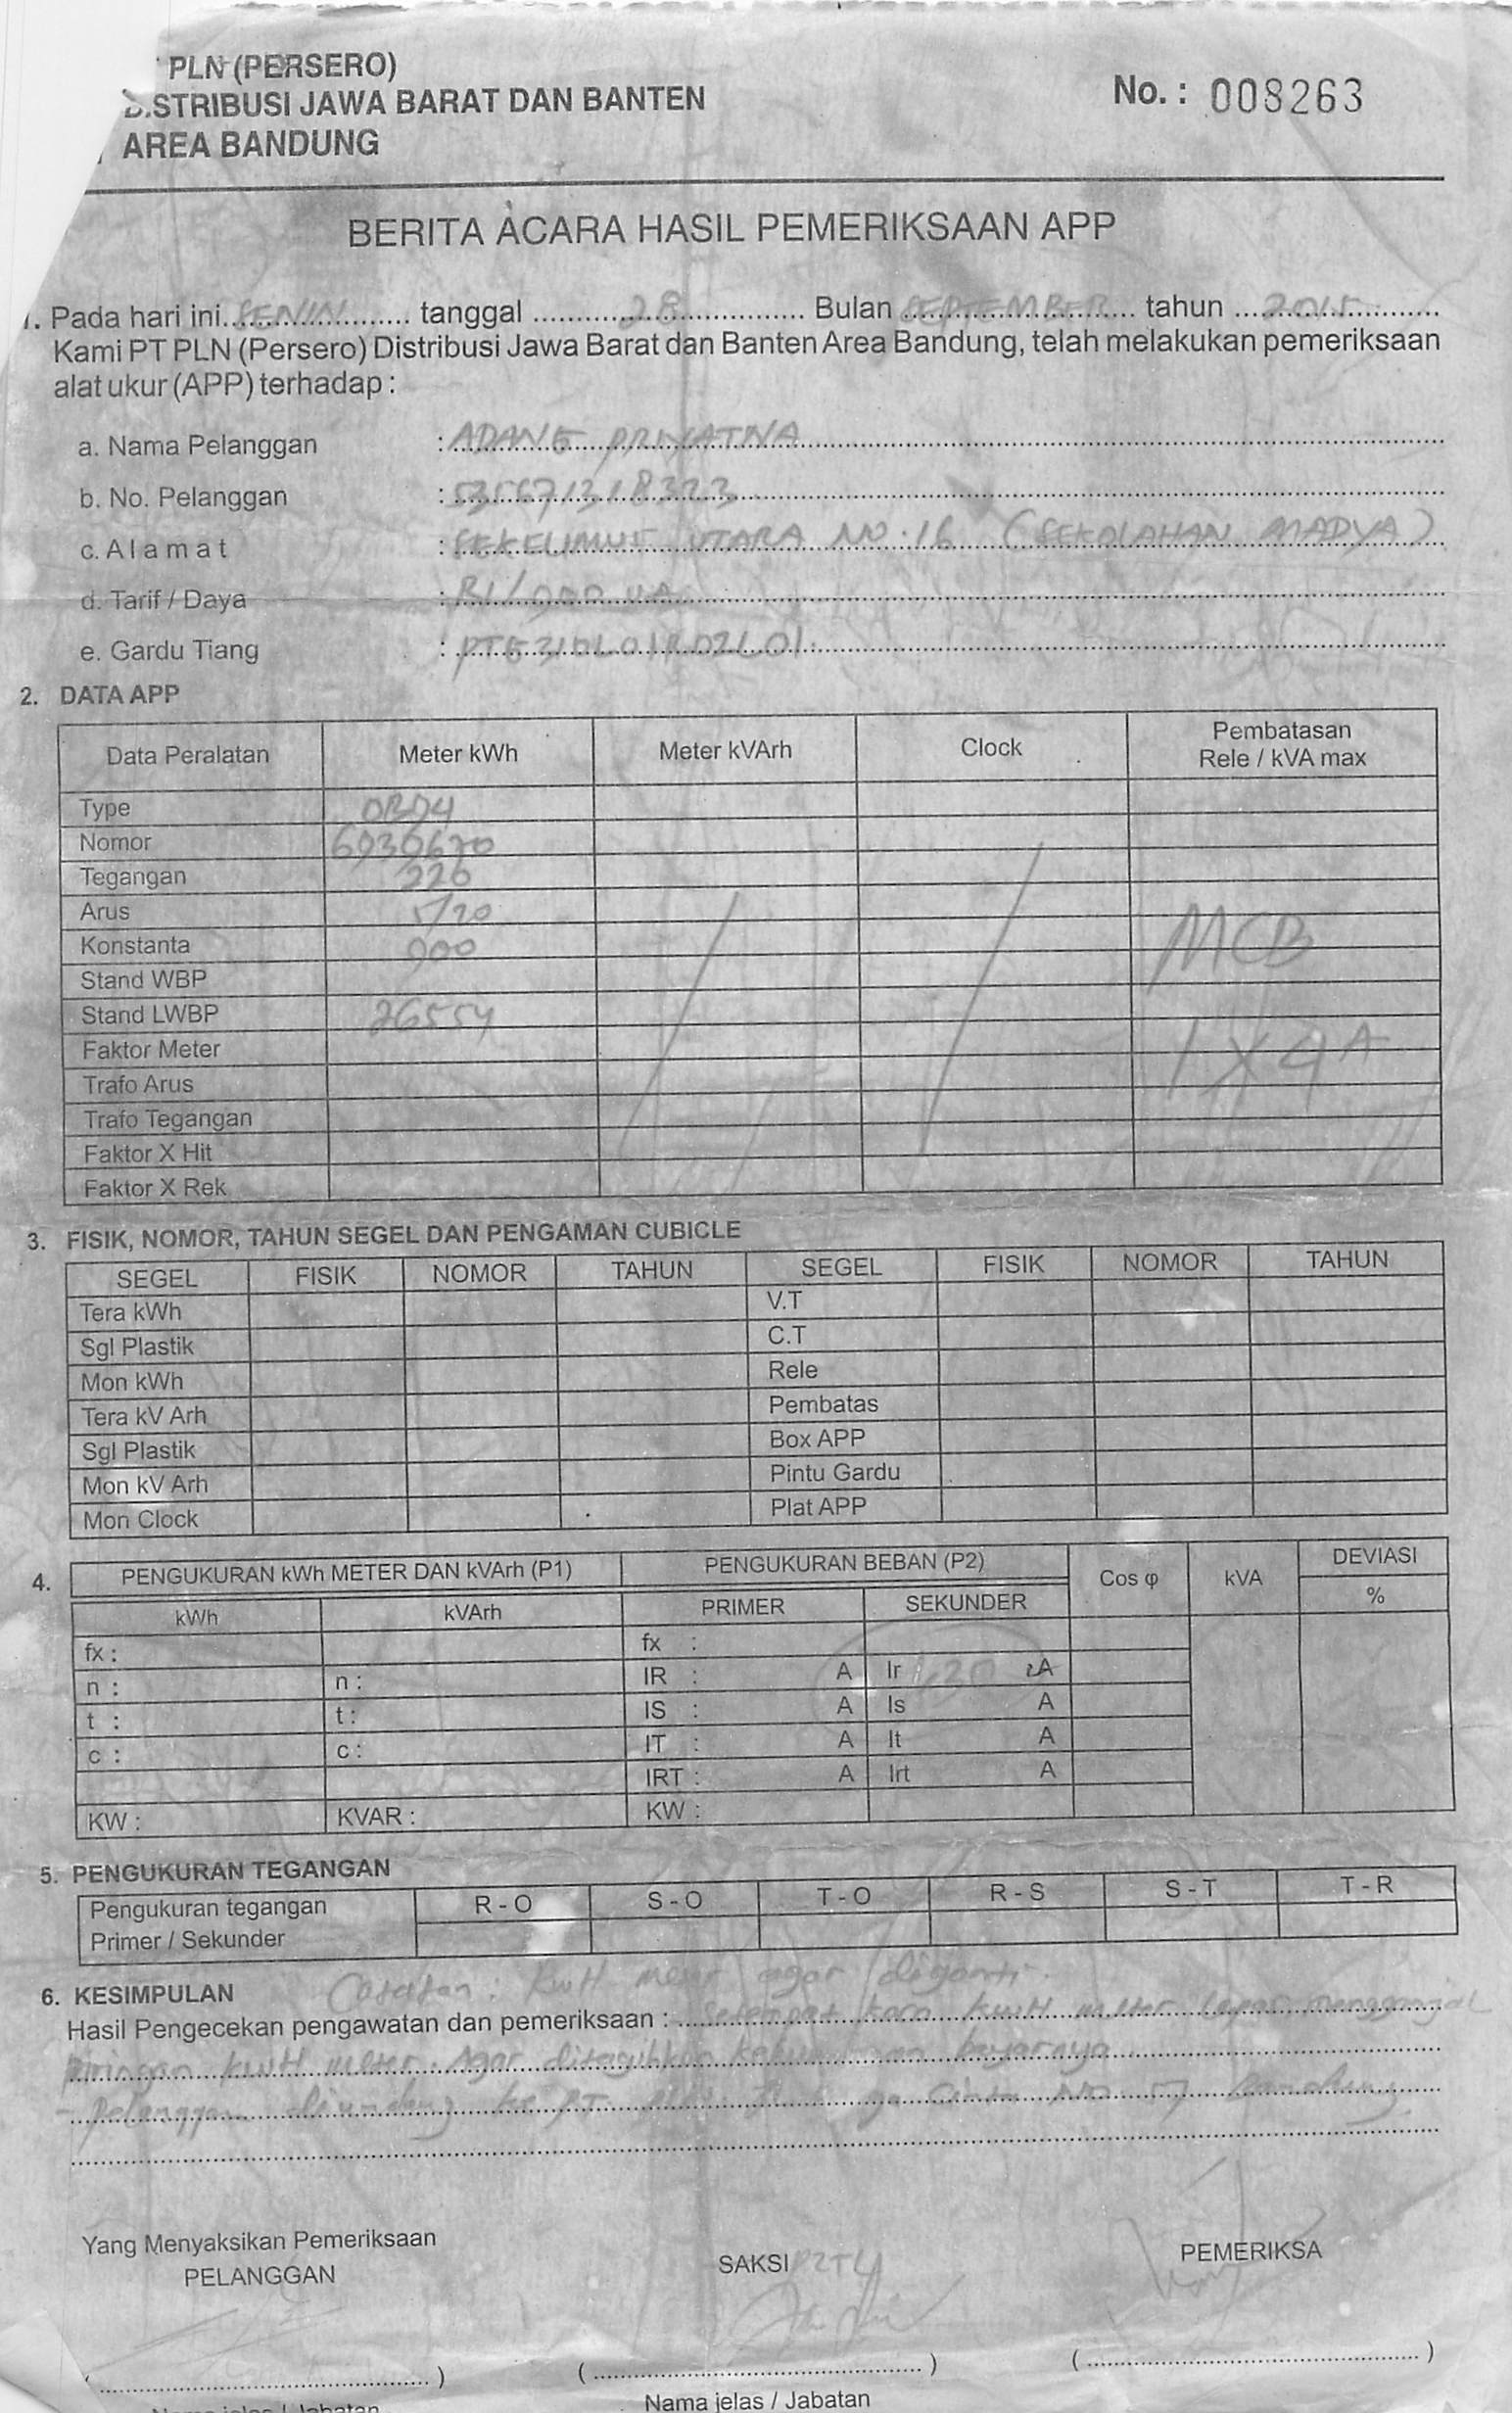 PLN (PERSERO)
DISTRIBUSI JAWA BARAT DAN BANTEN
AREA BANDUNG
No. : 008263
BERITA ACARA HASIL PEMERIKSAAN APP
1. Pada hari ini SENIN tanggal 28 Bulan SEPTEMBER tahun 2015
Kami PT PLN (Persero) Distribusi Jawa Barat dan Banten Area Bandung, telah melakukan pemeriksaan
alat ukur (APP) terhadap :
a. Nama Pelanggan : ADANG PRIYATNA
b. No. Pelanggan : 535671318323
c. A l a m a t : UTARA NO. 16 (SEKOLAHAN MADYA)
d. Tarif / Daya : R1/900 VA
e. Gardu Tiang :
2. DATA APP
Data Peralatan Meter kWh Meter kVArh Clock Pembatasan Rele / kVA max
Type
Nomor 6930670
Tegangan 220
Arus 5/20
Konstanta 900
MCB
Stand WBP
Stand LWBP 26554
Faktor Meter
1 X 4 A
Trafo Arus
Trafo Tegangan
Faktor X Hit
Faktor X Rek
3. FISIK, NOMOR, TAHUN SEGEL DAN PENGAMAN CUBICLE
SEGEL FISIK NOMOR TAHUN SEGEL FISIK NOMOR TAHUN
Tera kWh V.T
Sgl Plastik C.T
Mon kWh Rele
Tera kV Arh Pembatas
Sgl Plastik Box APP
Mon kV Arh Pintu Gardu
Mon Clock Plat APP
4. PENGUKURAN kWh METER DAN kVArh (P1) PENGUKURAN BEBAN (P2) Cos φ kVA DEVIASI
kWh kVArh PRIMER SEKUNDER %
fx : fx :
n : n : IR : A Ir 1,20 A
t : t : IS : A Is A
c : c : IT : A It A
IRT : A Irt A
KW : KVAR : KW :
5. PENGUKURAN TEGANGAN
Pengukuran tegangan R - O S - O T - O R - S S - T T - R
Primer / Sekunder
Catatan : kWH meter agar diganti.
6. KESIMPULAN
Hasil Pengecekan pengawatan dan pemeriksaan : kWH meter
piringan kWH meter. Agar ditagihkan kekurangan bayarnya
- Pelanggan diundang ke PT. Bandung
Yang Menyaksikan Pemeriksaan
PELANGGAN SAKSI P2TL PEMERIKSA
( ) ( ) ( )
Nama jelas / Jabatan Nama jelas / Jabatan